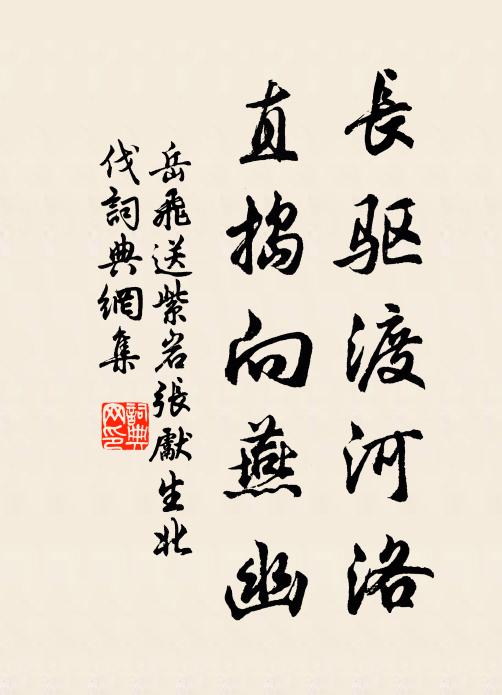 長驱渡河洛
直搗向燕幽
岳飛送紫岩張獻生北
伐詞典網集
詞典
网印